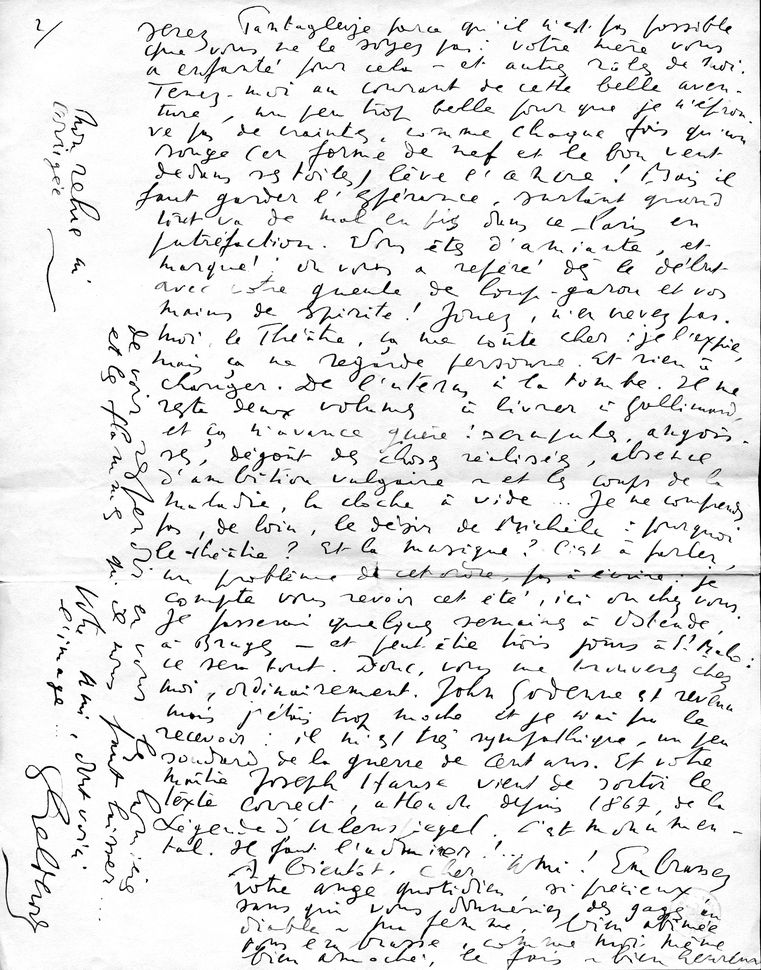 2/
serez Fantagleize parce qu'il n'est pas possible
que vous ne le soyez pas : votre mère vous
a enfanté pour cela – et autres rôles de moi.
Tenez-moi au courant de cette belle aven-
ture, un peu trop belle pour que je n'éprou-
ve pas de craintes, comme chaque fois qu'un
songe (en forme de nef et le bon vent
dedans ses toiles) lève l'ancre ! Mais il
faut garder l'Espérance, surtout quand
tout va de mal en pis dans ce Paris en
putréfaction. Vous êtes d'amiante, et
marqué ! on vous a repéré dès le début
avec votre gueule de loup-garou et vos
mains de spirite ! Jouez, n'en crevez pas.
Moi, le Théâtre, ça me coûte cher : je l'expie,
mais ça ne regarde personne. Et rien à
changer. De l'utérus à la tombe. Il me
reste deux volumes à livrer à Gallimard,
et ça n'avance guère : scrupules, angois-
ses, dégoût des choses réalisées, absence
d'ambition vulgaire – et les coups de la
maladie, la cloche à vide ... Je ne comprends
pas, de loin, le désir de Michèle : pourquoi
le théâtre ? Et la musique ? C'est à parler,
un problème de cet ordre, pas à écrire : je
compte vous revoir cet été, ici ou chez vous.
Je passerai quelques semaines à Ostende,
à Bruges – et peut-être trois jours à St Malo :
ce sera tout. Donc, vous me trouverez chez
moi, ordinairement. John Godenne est revenu
mais j'étais trop moche et je n'ai pu le
recevoir : il m'est très sympathique, un peu
soudard de la guerre de Cent ans. Et votre
maître Joseph Hanse vient de sortir le
texte correct, attendu depuis 1867, de la
Légende d'Ulenspiegel. C'est monumen-
tal. Il faut l'admirer !
A bientôt, cher Ami ! Embrassez
votre ange quotidien si précieux
sans qui vous donneriez des gages au
diable – ma femme, bien abîmée
vous embrasse, comme moi-même
bien amoché, le fais – bien
Mon retue ai
corrigée
de voir resplendir en vous les
et les flammes qu'il nous faut laisser ...
Votre Ami, dont voici
l'image ...
Ghelderode